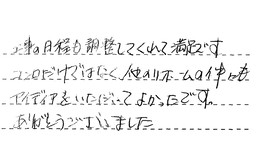 事の日程も調整してくれて満足です
コンロだけではなく、他のリホームの件にも
アイディアをいただいてよかったです。
ありがとうございました